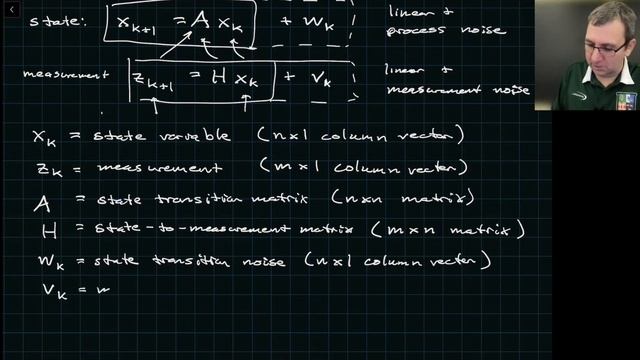 state: x_{k+1} = A x_k + w_k linear + process noise
measurement z_{k+1} = H x_k + v_k linear + measurement noise
x_k = state variable (n×1 column vector)
z_k = measurement (m×1 column vector)
A = state transition matrix (n×n matrix)
H = state-to-measurement matrix (m×n matrix)
w_k = state transition noise (n×1 column vector)
v_k = m